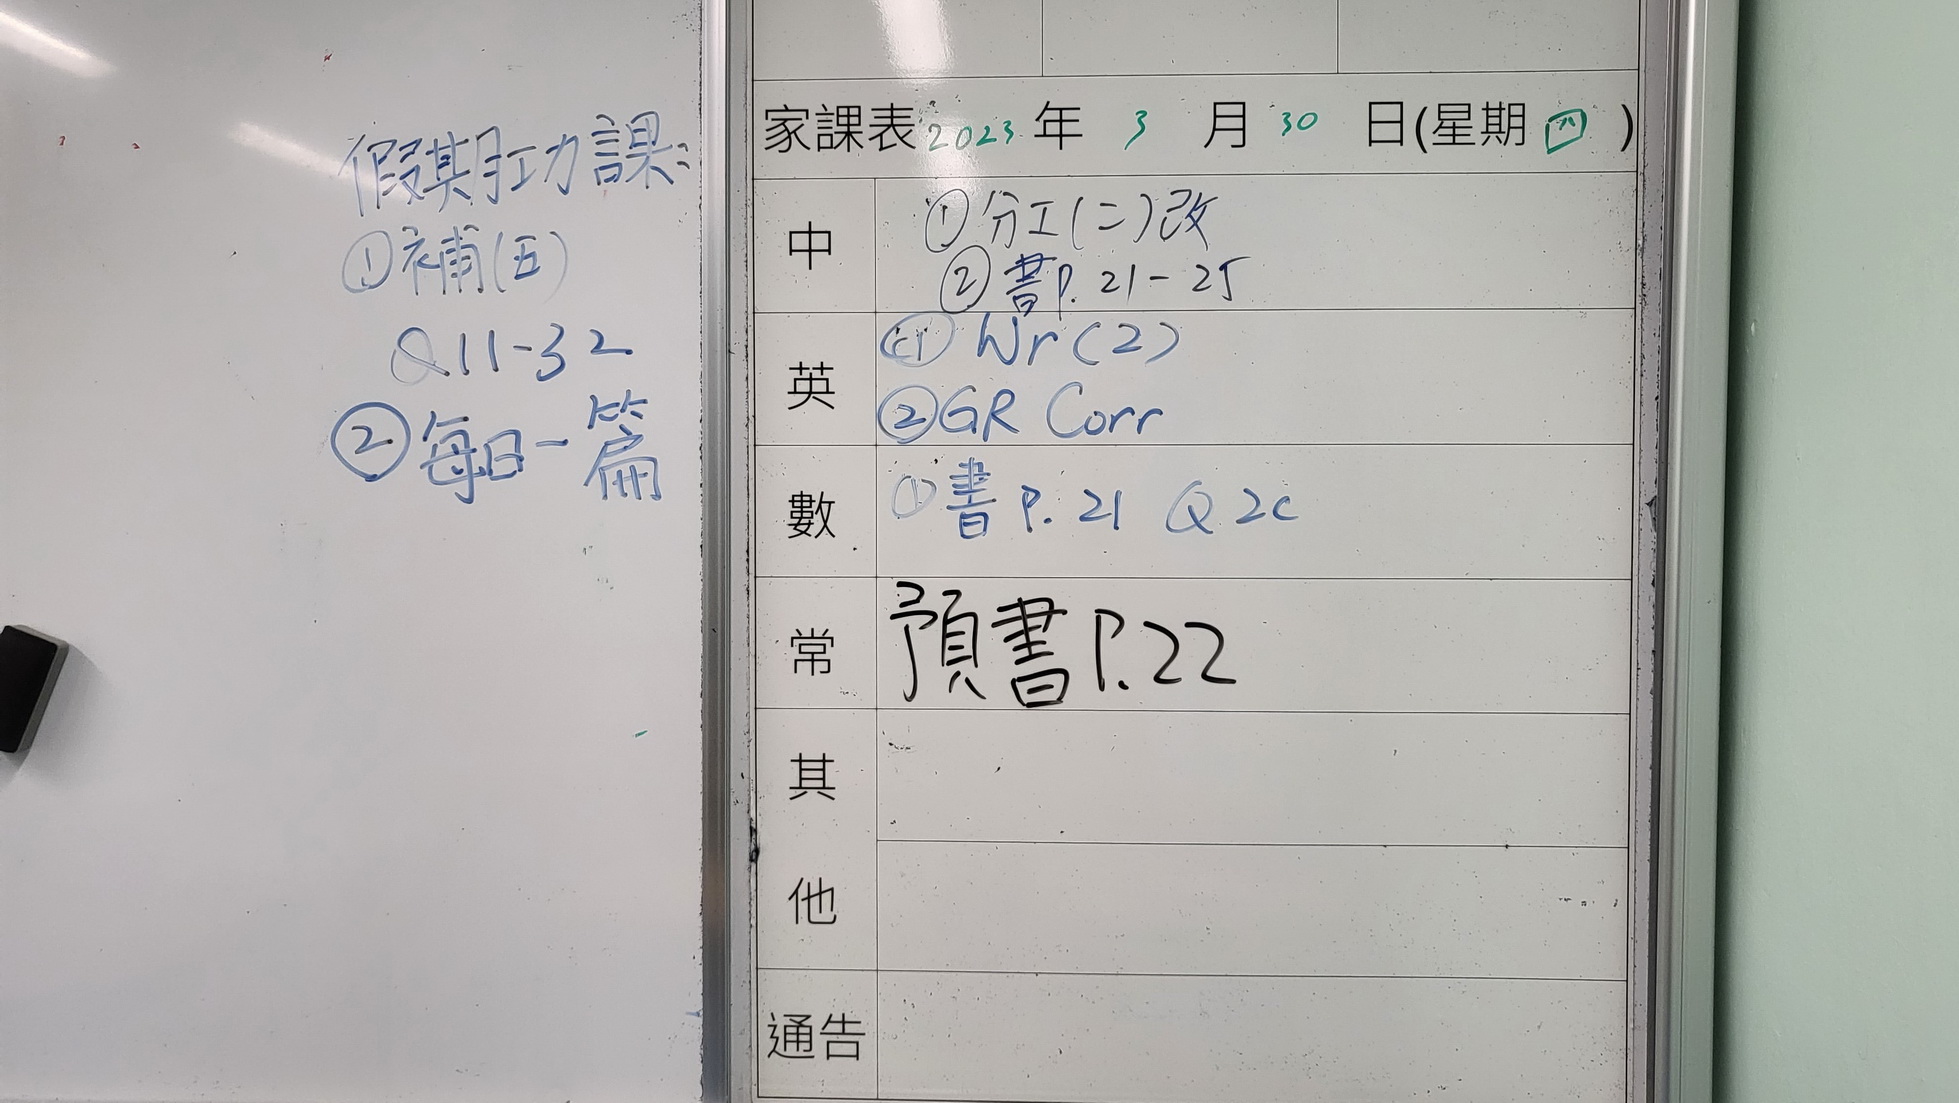 假期功課:
①補(五)
Q11-32
②每日一篇
家課表2023年3月30日(星期四)
中
①分工(二)改
②書P.21-25
英
① Wr(2)
②GR Corr
數
①書P.21 Q2c
常
預書P.22
其
他
通告